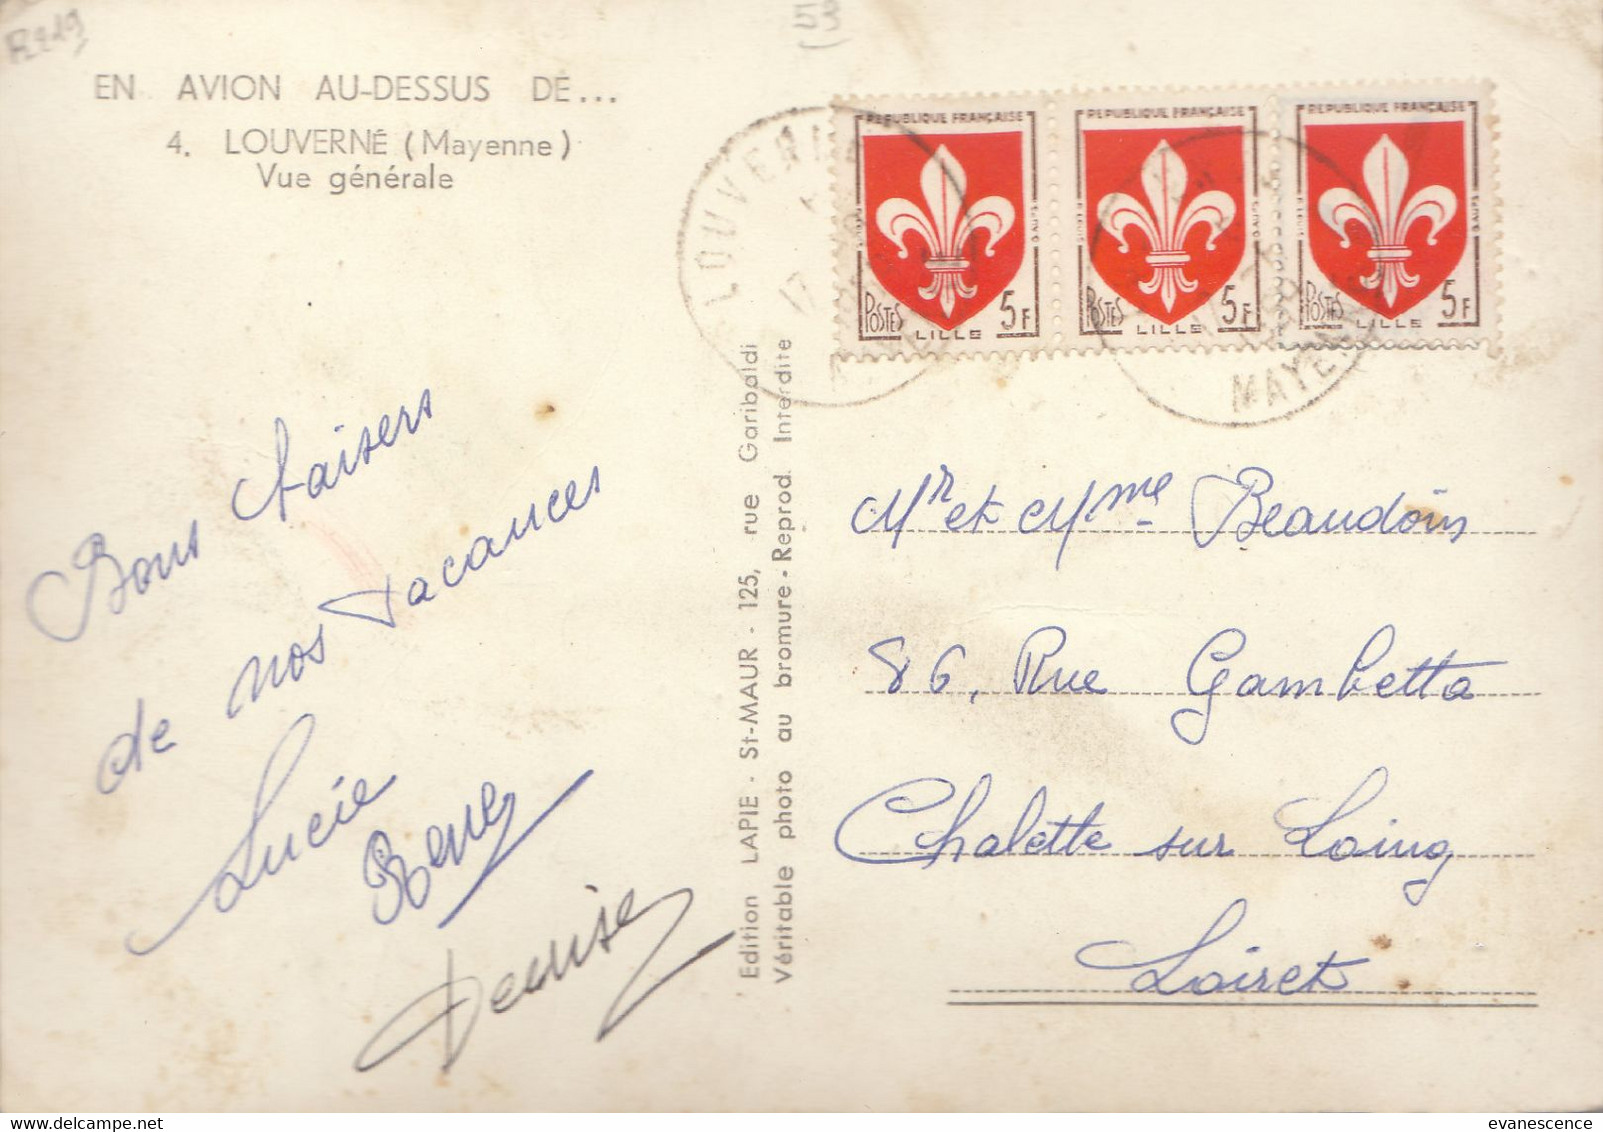 EN AVION AU-DESSUS DE...
4. LOUVERNÉ (Mayenne)
Vue générale
Bons baisers
de nos vacances
Lucie
René
Denise
Edition LAPIE - St-MAUR - 125, rue Garibaldi
Véritable photo au bromure - Reprod. Interdite
LOUVERNE
17
MAYENNE
REPUBLIQUE FRANÇAISE
POSTES LILLE 5F
REPUBLIQUE FRANÇAISE
POSTES LILLE 5F
REPUBLIQUE FRANÇAISE
POSTES LILLE 5F
Mr et Mme Beaudoin
86, Rue Gambetta
Chalette sur Loing
Loiret
evanescence